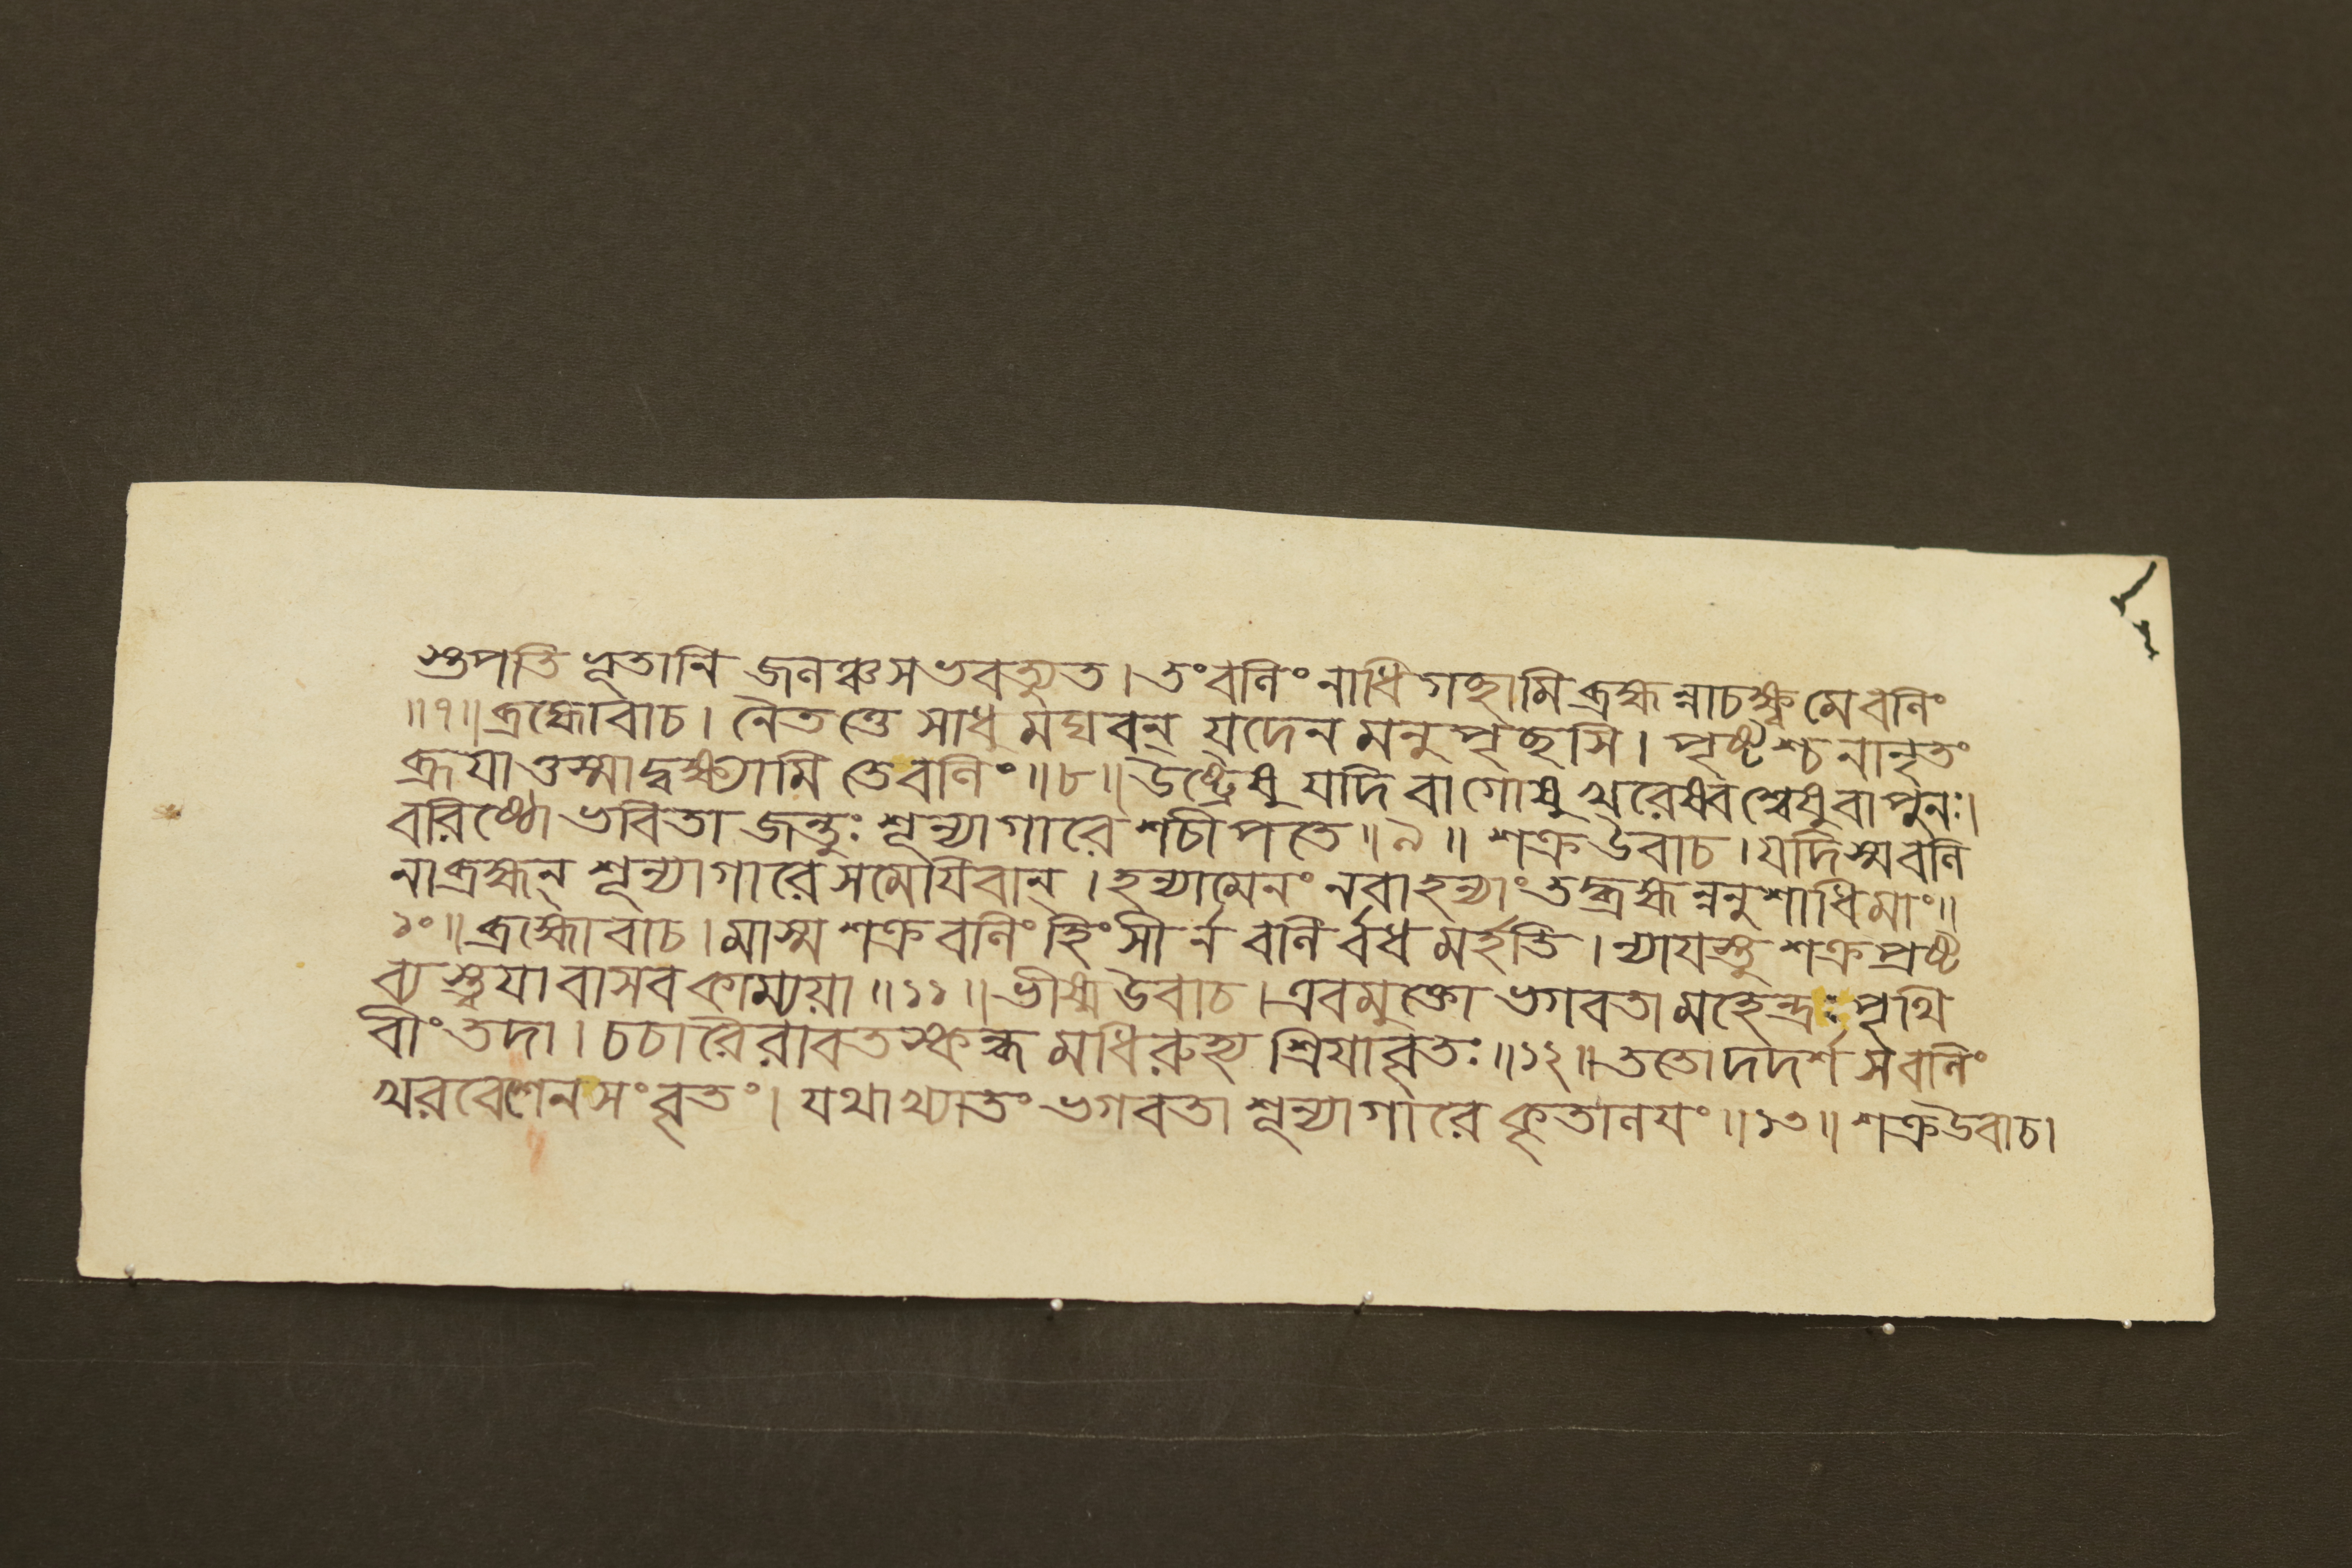 শুপতি ভূতানি জনঞ্চসভবত্যুত। তংবলিং নাধিগচ্ছামিব্রহ্মন্নাচক্ষ্বমেবলিং
॥৭॥ব্রহ্মোবাচ। নৈতত্তে সাধু মঘবন্ যদেনমনুপৃচ্ছসি। পৃষ্টশ্চনানৃতং
ব্রূযাত্তস্মাদ্বক্ষ্যামি তেবলিং॥৮॥উষ্ট্রেষু যদি বাগোষু খরেষ্বশ্বেষুবাপুনঃ।
বরিষ্ঠো ভবিতা জন্তুঃ শূন্যাগারে শচীপতে॥৯॥ শক্রউবাচ। যদিস্মবলি
নাব্রহ্মন্ শূন্যাগারেসমেযিবান্। হন্যামেনং নবাহন্যাং তদ্ব্রহ্মন্ননুশাধিমাং॥
১০॥ব্রহ্মোবাচ। মাস্মশক্রবলিং হিংসীর্নবলির্বধমর্হতি। ন্যাযস্তু শক্রপ্রষ্ট
ব্যস্ত্বযাবাসবকাম্যয়া॥১১॥ভীষ্মউবাচ। এবমুক্তো ভগবতামহেন্দ্রঃপৃথি
বীং তদা। চচারৈরাবতস্কন্ধমধিরুহ্য শ্রিযাবৃতঃ॥১২॥ততোদদর্শ সবলিং
খরবেশেনসংবৃতং। যথাখ্যাতং ভগবতা শূন্যাগারেকৃতালযং॥১৩॥ শক্রউবাচ।